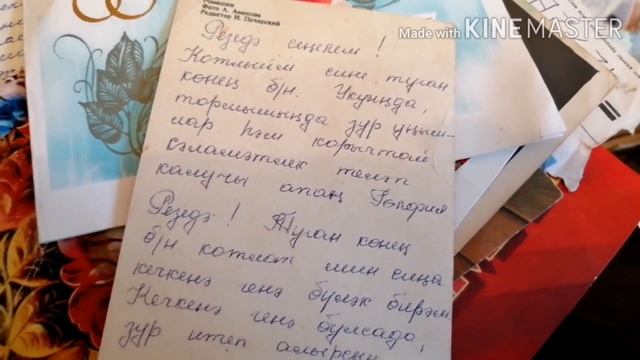 Made with KINEMASTER
Ромашки
Фото А. Амосова
Редактор И. Печерский
Резедэ сеңелем!
Котлыйм сине туган
көнең б/н. Укуыңда,
тормышыңда зур уңыш-
лар һәм корычтай
сәламәтлек теләп
калучы апаң
Резедэ! Туган көнең
б/н котлап мин сиңа
кечкенә генә бүләк бирәм
Кечкенә генә булсада,
зур итеп алырсың